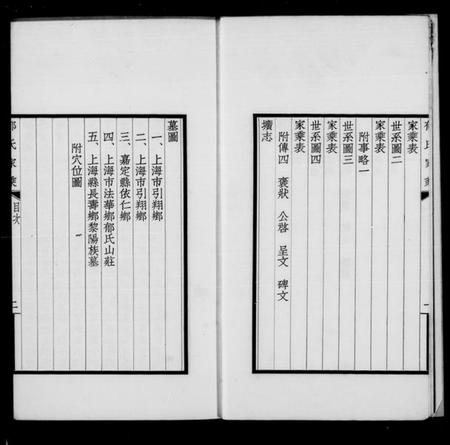 家乘表
世系圖二
家乘表
附事略一
世系圖三
家乘表
世系圖四
家乘表
附傳四 褒狀 公啓 呈文 碑文
壙志
墓圖
一、上海市引翔鄉
二、上海市引翔鄉
三、嘉定縣依仁鄉
四、上海市法華鄉郁氏山莊
五、上海縣長壽鄉黎陽族墓
附穴位圖
郁氏家乘
目次
二